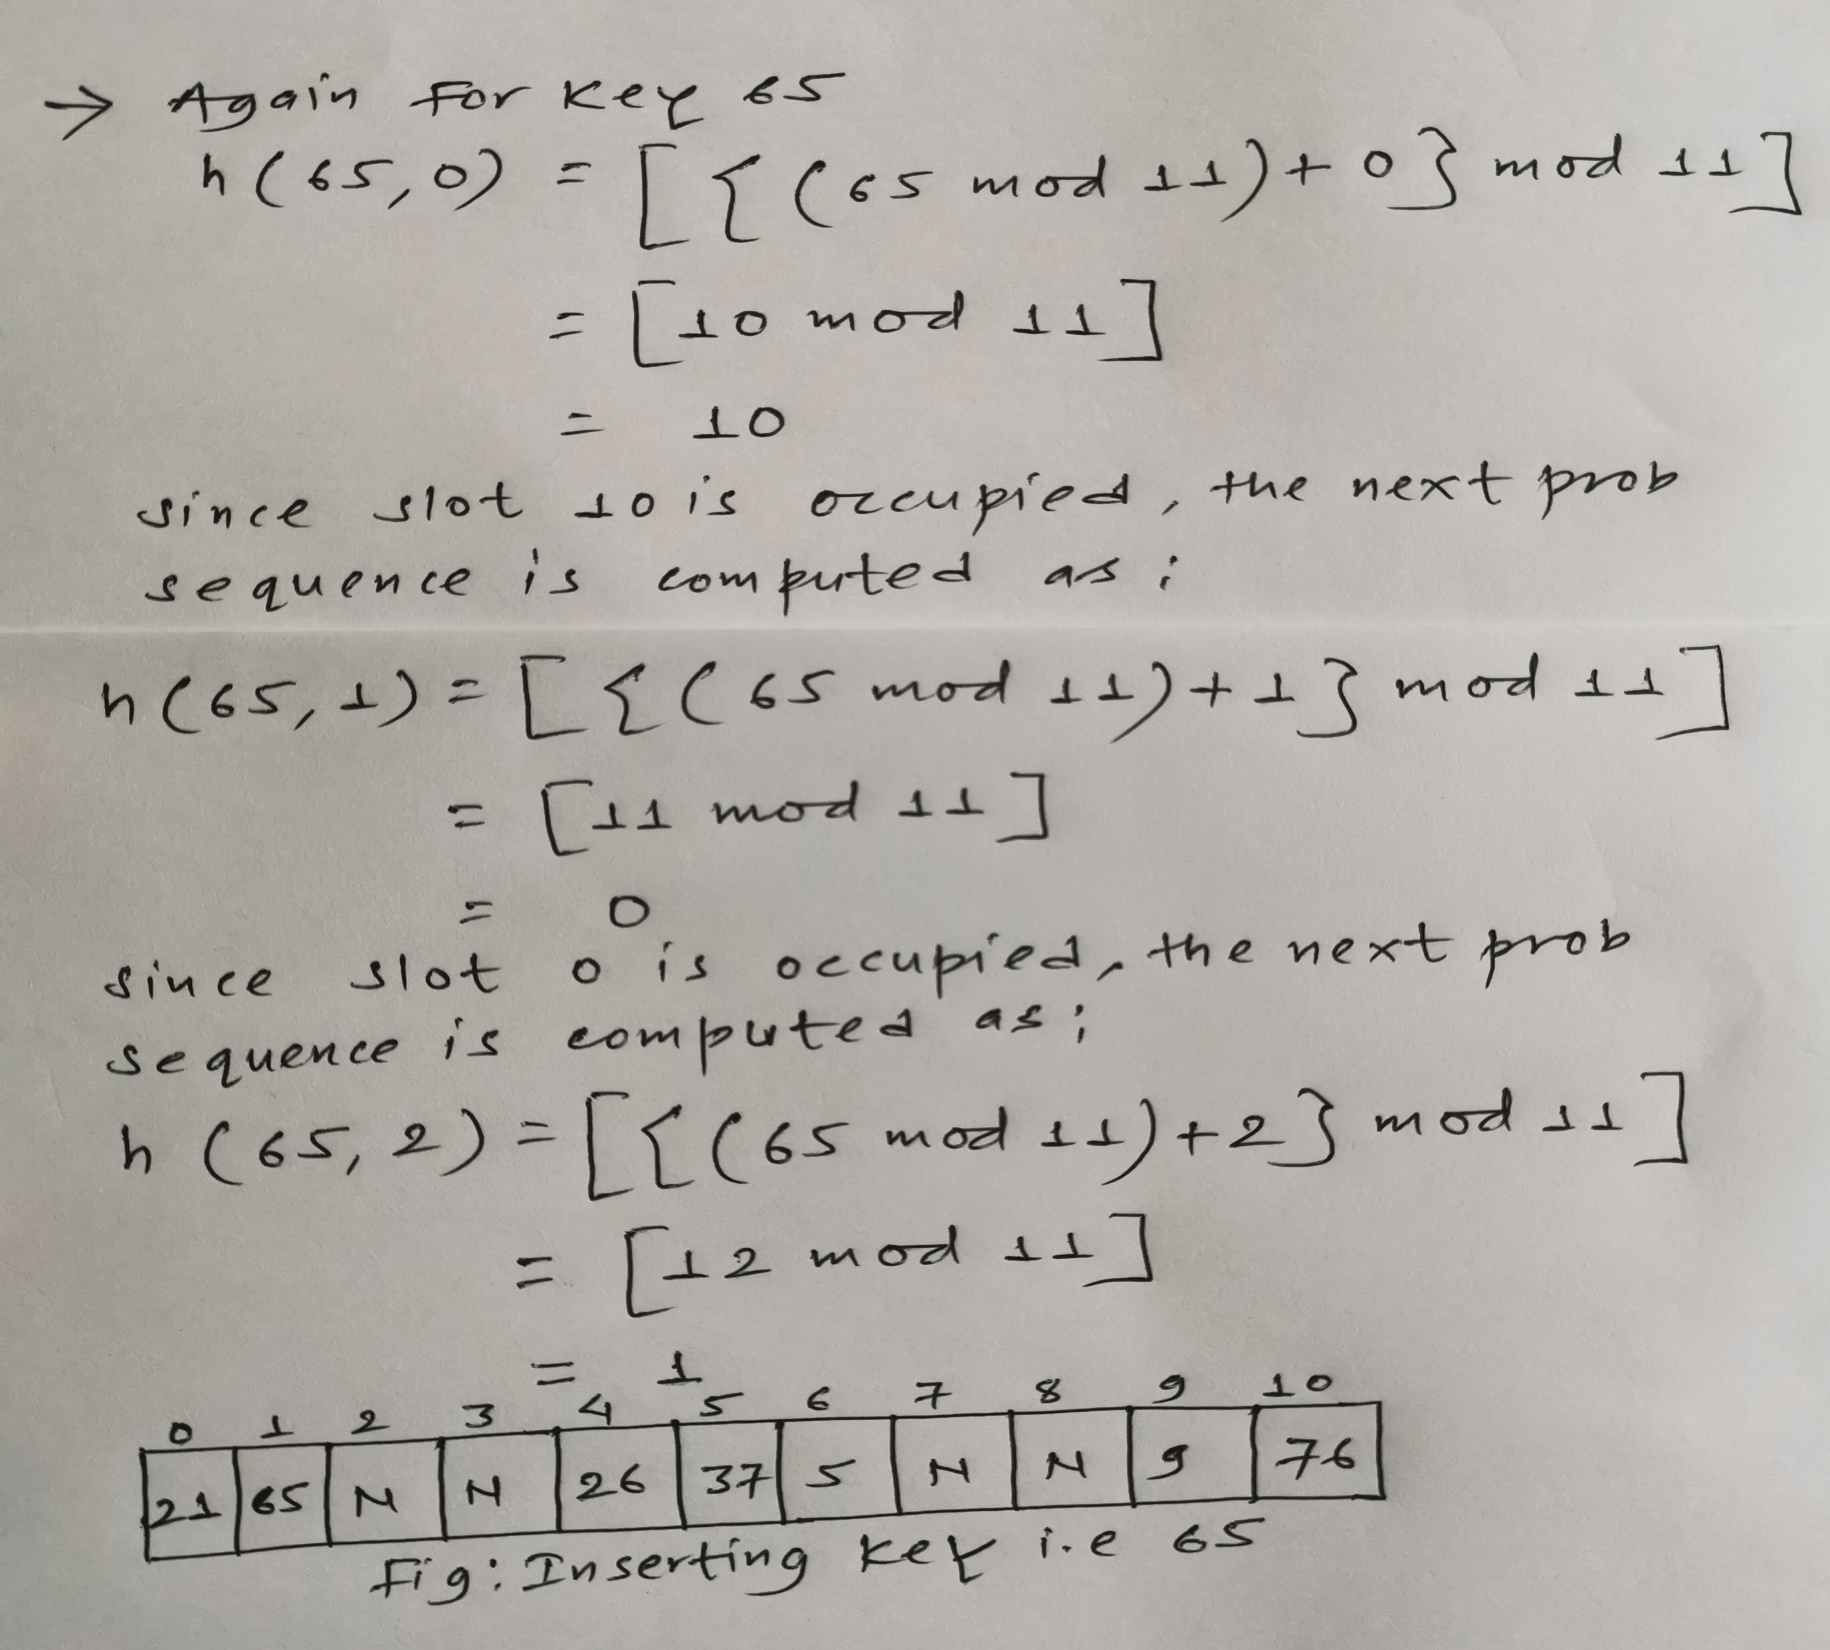 → Again For Key 65
h(65,0) = [{(65 mod 11)+0} mod 11]
= [10 mod 11]
= 10
since slot 10 is occupied, the next prob
sequence is computed as;
h(65,1) = [{(65 mod 11)+1} mod 11]
= [11 mod 11]
= 0
since slot 0 is occupied, the next prob
sequence is computed as;
h(65,2) = [{(65 mod 11)+2} mod 11]
= [12 mod 11]
= 1
0 1 2 3 4 5 6 7 8 9 10
21 65 N N 26 37 5 N N 9 76
Fig: Inserting Key i.e 65